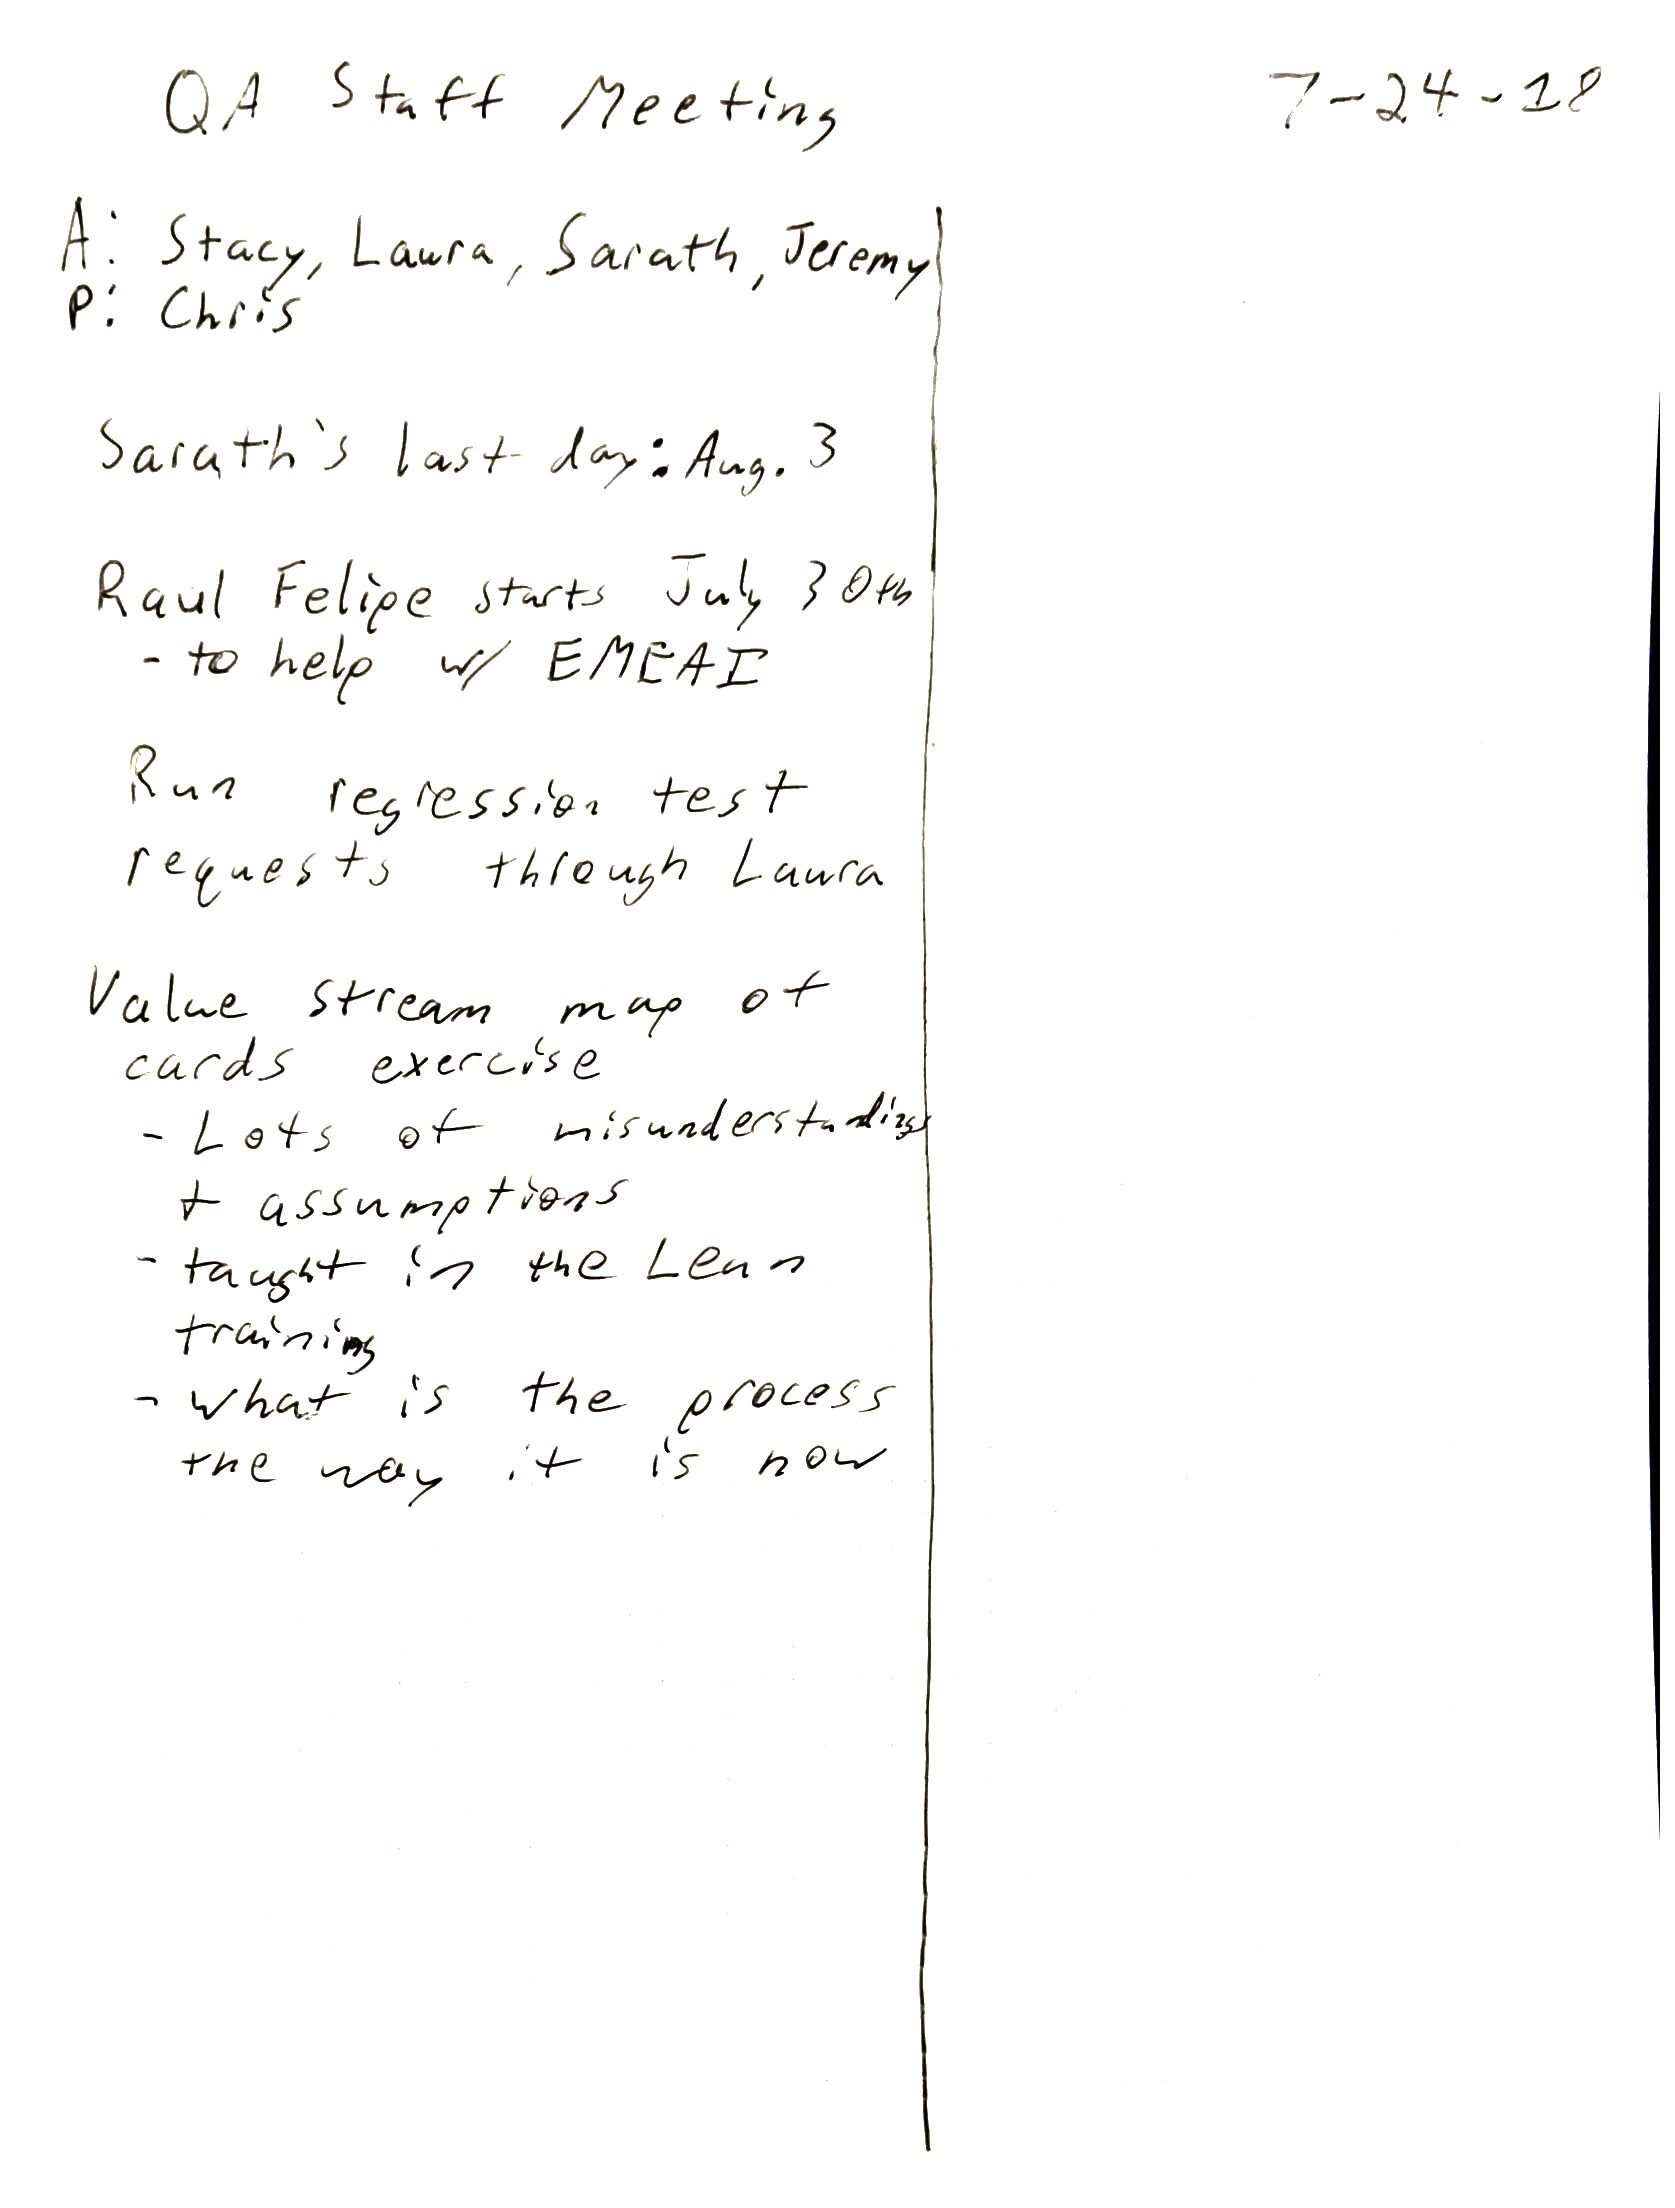 QA Staff Meeting 7-24-18
A: Stacy, Laura, Sarath, Jeremy
P: Chris
Sarath's last day: Aug. 3
Raul Felipe starts July 30th
- to help w/ EMEAI
Run regression test
requests through Laura
Value stream map of
cards exercise
- Lots of misunderstandings
+ assumptions
- taught in the Lean
training
- what is the process
the way it is now